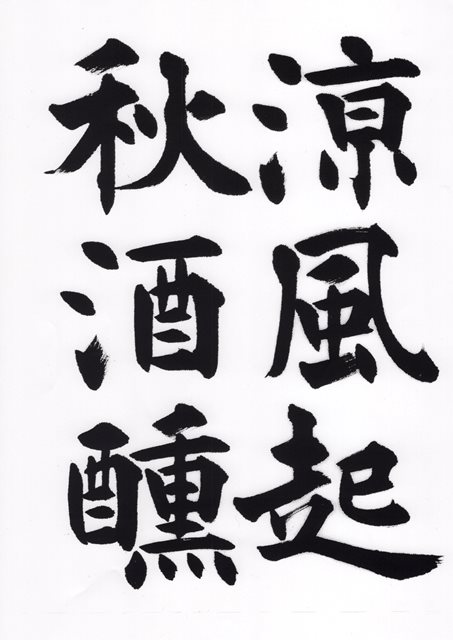 涼風起
秋酒醺